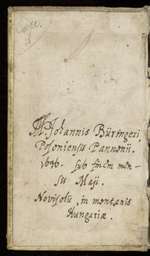 M. Johannis Büringeri
Posoniensis Pannonii.
1646. sub finem men-
sis Maji.
Novisolii in montanis
Hungariæ.